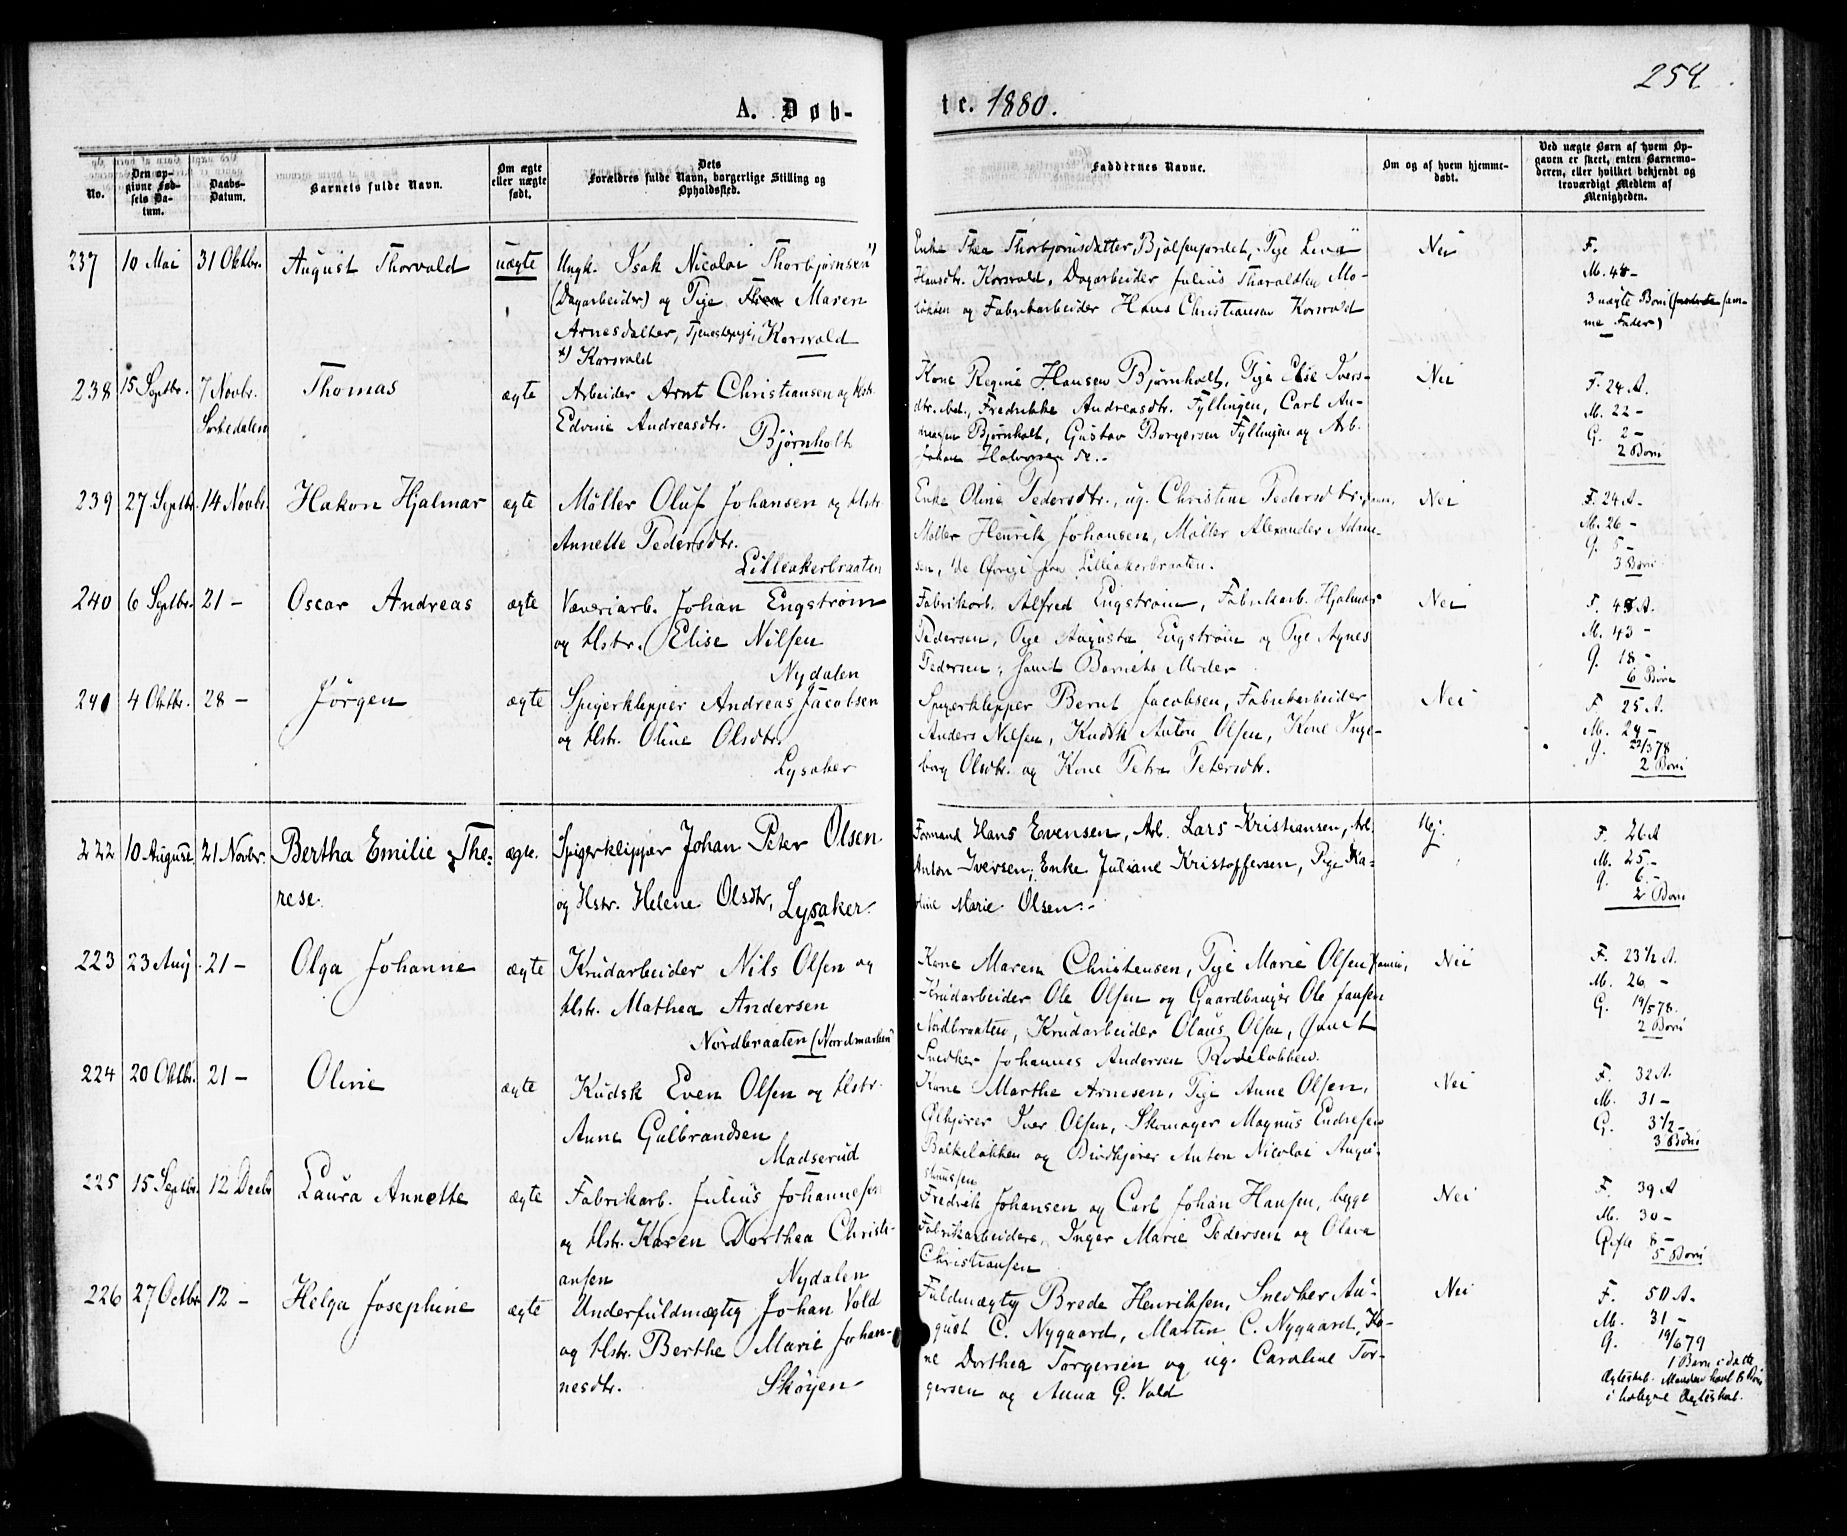 254
A. Døb-
te. 1880.
No.
Den op-
givne Fød-
sels Da-
tum.
Daabs-
Datum.
Barnets fulde Navn.
Om ægte
eller uægte
født.
Dets
Forældres fulde Navn, borgerlige Stilling og
Opholdssted.
Faddernes Navne.
Om og af hvem hjemme-
døbt.
Ved uægte Børn af hvem Op-
gaven er skeet, enten Barnemo-
deren, eller hvilket bekjendt og
troværdigt Medlem af
Menigheden.
237 10 Mai 31 Oktbr. August Thorvald uægte
Ungk. Isak Nicolai Thorbjørnsen
(Dagarbeider) og Pige Maren
Arnesdatter, Korsvold
Korsvold
Enke Thea Thorbjørnsdatter, Pige Lina
Hansdtr. Korsvold, Dagarbeider Julius Thoraldsen Mo-
løkken og Fabrikarbeider Hans Christiansen Korsvold
Nei
F.
M. 48 -
3 uægte Børn sam-
me Fader)
238 15 Septbr. 7 Novbr. Thomas ægte
Sørkedalen
Arbeider Arnt Christiansen og Hstr.
Edvine Andreasdtr.
Bjørnholt
Kone Regine Hansen Bjørnholt, Pige Elise Ivers-
dtr. ibd., Fredrikke Andreasdtr. Fyllingen, Carl An-
dreasen Bjørnholt, Gustav Borgersen Fyllingen og Arb.
Johan Halvorsen do.
Nei
F. 24 A.
M. 22 -
G. 2 -
2 Børn
239 27 Septbr. 14 Novbr. Hakon Hjalmar ægte
Møller Oluf Johansen og Hstr.
Annette Pedersdtr.
Lilleakerbraaten
Enke Oline Pedersdtr., ug. Christine Pedersdtr.
Møller Henrik Johansen, Møller Alexander
sen, de Øvrige fra Lilleakerbraaten.
Nei
F. 24 A.
M. 26 -
G. 5 -
3 Børn
240 6 Septbr. 21 - Oscar Andreas ægte
Væveriarb. Johan Engstrøm
og Hstr. Elise Nilsen
Nydalen
Fabrikarb. Alfred Engstrøm, Fabrikarb. Hjalmar
Pedersen, Pige Augusta Engstrøm og Pige Agnes
Pedersen, samt Barnets Moder
Nei
M. 43 -
G. 18 -
6 Børn
241 4 Oktbr. 28 - Jørgen ægte
Spigerklipper Andreas Jacobsen
og Hstr. Oline Olsdtr.
Lysaker
Spigerklipper Bernt Jacobsen, Fabrikarbeider
Anders Nilsen, Kudsk Anton Olsen, Kone Inge-
borg Olsdtr. og Kone Petra Petersdtr.
Nei
F. 25 A.
M. 24 -
G. 22/3 78
2 Børn
222 10 August 21 Novbr. Bertha Emilie The- ægte.
rese.
Spigerklipper Johan Peter Olsen
og Hstr. Helene Olsdtr, Lysaker.
Formand Hans Evensen, Arb. Lars Kristiansen, Arb.
Anton Iversen, Enke Juliane Kristoffersen, Pige Ka-
roline Marie Olsen.
Nej.
F. 26 A
M. 25 -
G. 6 -
2 Børn
223 23 Aug. 21 - Olga Johanne ægte
Krudarbeider Nils Olsen og
Hstr. Mathea Andersen
Nordbraaten (Nordmarken)
Kone Maren Christensen, Pige Marie Olsen
Krudarbeider Ole Olsen og Gaardbruger Ole Jansen
Nordbraaten, Krudarbeider Olaus Olsen, samt
Snedker Johannes Andersen Rodeløkken.
Nei
F. 23 1/2 A.
M. 26 -
G. 19/5 78.
2 Børn
224 20 Oktbr. 21 - Oline ægte
Kudsk Even Olsen og Hstr.
Anne Gulbrandsen
Madserud
Kone Marthe Arnesen, Pige Anne Olsen,
Ølkjører Iver Olsen, Skomager Magnus Endresen
Balkeløkken og Brødkjører Anton Nicolai Augu-
stinussen
Nei
F. 32 A.
M. 31 -
G. 3 1/2 -
3 Børn
225 15 Septbr. 12 Decbr. Laura Annette ægte
Fabrikarb. Julius Johannesen
og Hstr. Karen Dorthea Christi-
ansen Nydalen
Fredrik Johansen og Carl Johan Hansen, begge
Fabrikarbeidere, Inger Marie Pedersen og Olava
Christiansen
Nei
F. 39 A
M. 30 -
Gifte 8 -
5 Børn
226 27 Octbr. 12 - Helga Josephine ægte
Underfuldmægtig Johan Vold
og Hstr. Berthe Marie Johan-
nesdtr. Skøyen
Fuldmægtig Brede Henriksen, Snedker Au-
gust C. Nygaard, Martin C. Nygaard, Ko-
ne Dorthea Torgersen og ug. Caroline Tor-
gersen og Anna G. Vold
Nei
F. 50 A.
M. 31 -
G. 19/6 79
1 Barn i dette
Ægteskab. Manden havt 6 Børn
i tidligere Ægteskab.